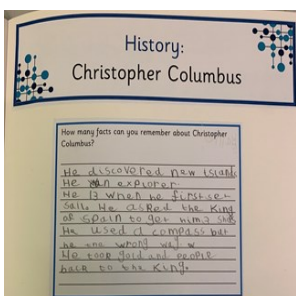 History:
Christopher Columbus
How many facts can you remember about Christopher
Columbus?
He discovered new islands
He an explorer.
He 13 when he first set
sail. He asked the King
of Spain to get him 3 ships
He used a compass but
he the wrong way
He took gold and people
back to the King.